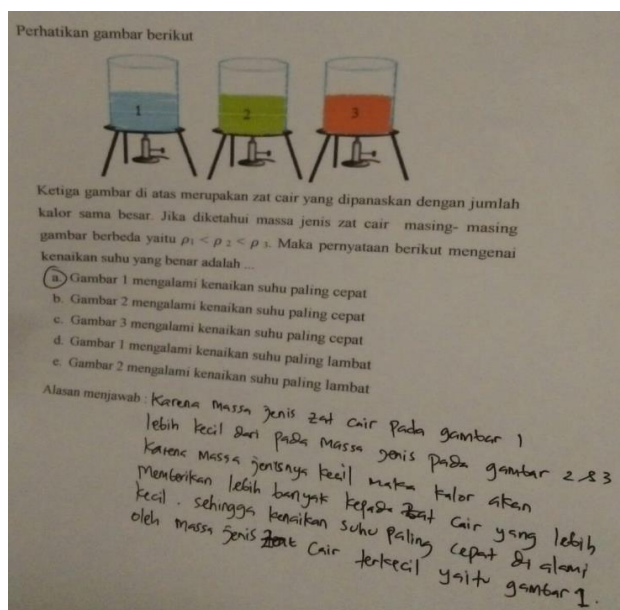 Perhatikan gambar berikut
1 2 3
Ketiga gambar di atas merupakan zat cair yang dipanaskan dengan jumlah
kalor sama besar. Jika diketahui massa jenis zat cair masing- masing
gambar berbeda yaitu ρ₁ < ρ ₂ < ρ ₃. Maka pernyataan berikut mengenai
kenaikan suhu yang benar adalah ...
a. Gambar 1 mengalami kenaikan suhu paling cepat
b. Gambar 2 mengalami kenaikan suhu paling cepat
c. Gambar 3 mengalami kenaikan suhu paling cepat
d. Gambar 1 mengalami kenaikan suhu paling lambat
e. Gambar 2 mengalami kenaikan suhu paling lambat
Alasan menjawab : Karena massa jenis zat cair pada gambar 1
lebih kecil dari pada massa jenis pada gambar 2 & 3
Karena massa jenisnya kecil maka kalor akan
memberikan lebih banyak kepada zat cair yang lebih
kecil. sehingga kenaikan suhu paling cepat di alami
oleh massa jenis cair terkecil yaitu gambar 1.